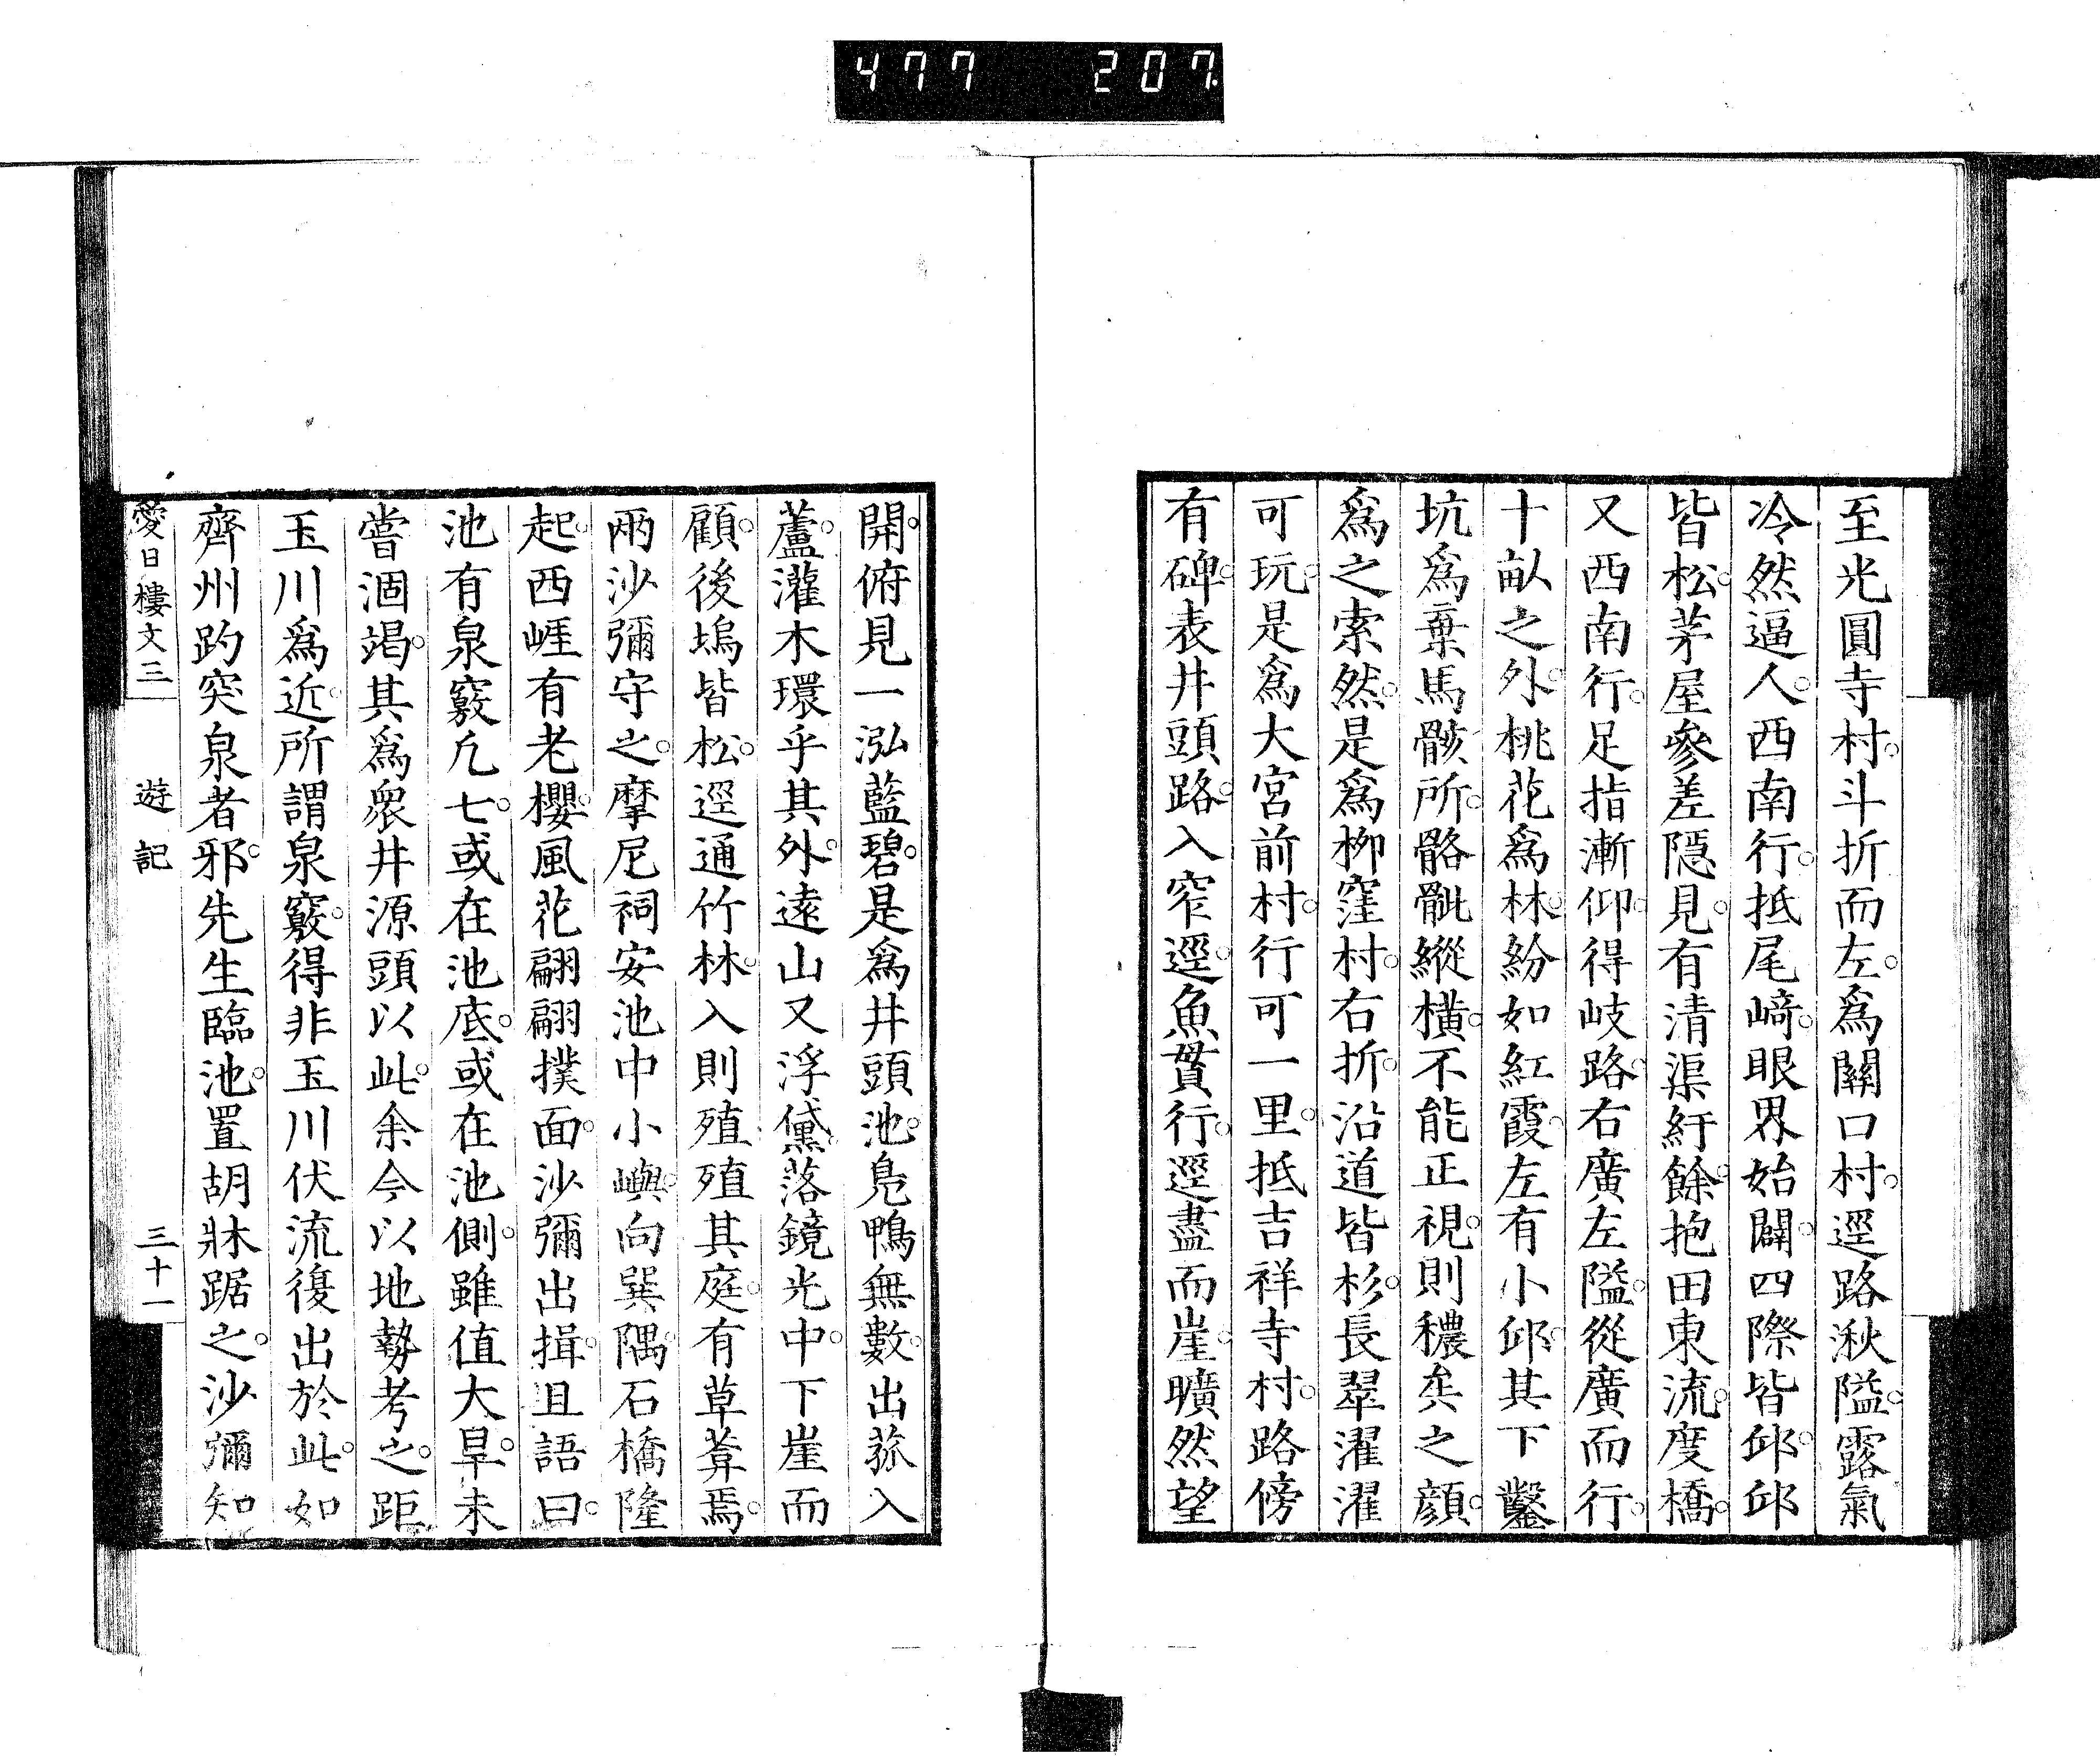 477 207
至光圓寺村。斗折而左。爲關口村。逕路湫隘。露氣
冷然逼人。西南行。抵尾﨑。眼界始闢。四際皆邱。邱
皆松。茅屋參差隱見。有清渠紆餘。抱田東流。度橋。
又西南行。足指漸仰。得岐路。右廣左隘。從廣而行。
十畝之外。桃花爲林。紛如紅霞。左有小邱。其下鑿
坑。爲棄馬骸所。骼骴縱橫。不能正視。則穠矣之顏。
爲之索然。是爲柳窪村。右折。沿道皆杉。長翠濯濯
可玩。是爲大宮前村。行可一里。抵吉祥寺村。路傍
有碑。表井頭路。入窄逕。魚貫行。逕盡而崖。曠然望
開。俯見一泓藍碧。是爲井頭池。鳧鴨無數。出菰入
蘆。灌木環乎其外。遠山又浮黛。落鏡光中。下崖而
顧。後塢皆松。逕通竹林。入則殖殖其庭。有草葊焉。
兩沙彌守之。摩尼祠安池中小嶼。向巽隅。石橋隆
起。西崕有老櫻。風花翩翩撲面。沙彌出揖。且語曰。
池有泉竅凢七。或在池底。或在池側。雖值大旱。未
嘗涸竭。其爲衆井源頭以此。余今以地勢考之。距
玉川爲近。所謂泉竅。得非玉川伏流復出於此。如
齊州趵突泉者邪。先生臨池。置胡牀踞之。沙彌知
愛日樓文三 遊記 三十一